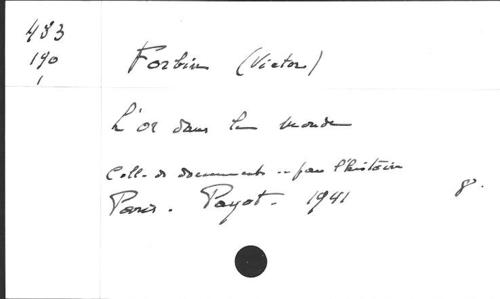 483
190
1
Forbin (Victor)
L'or dans le monde
Coll. de documents .. pour l'histoire
Paris. Payot. 1941
8°.